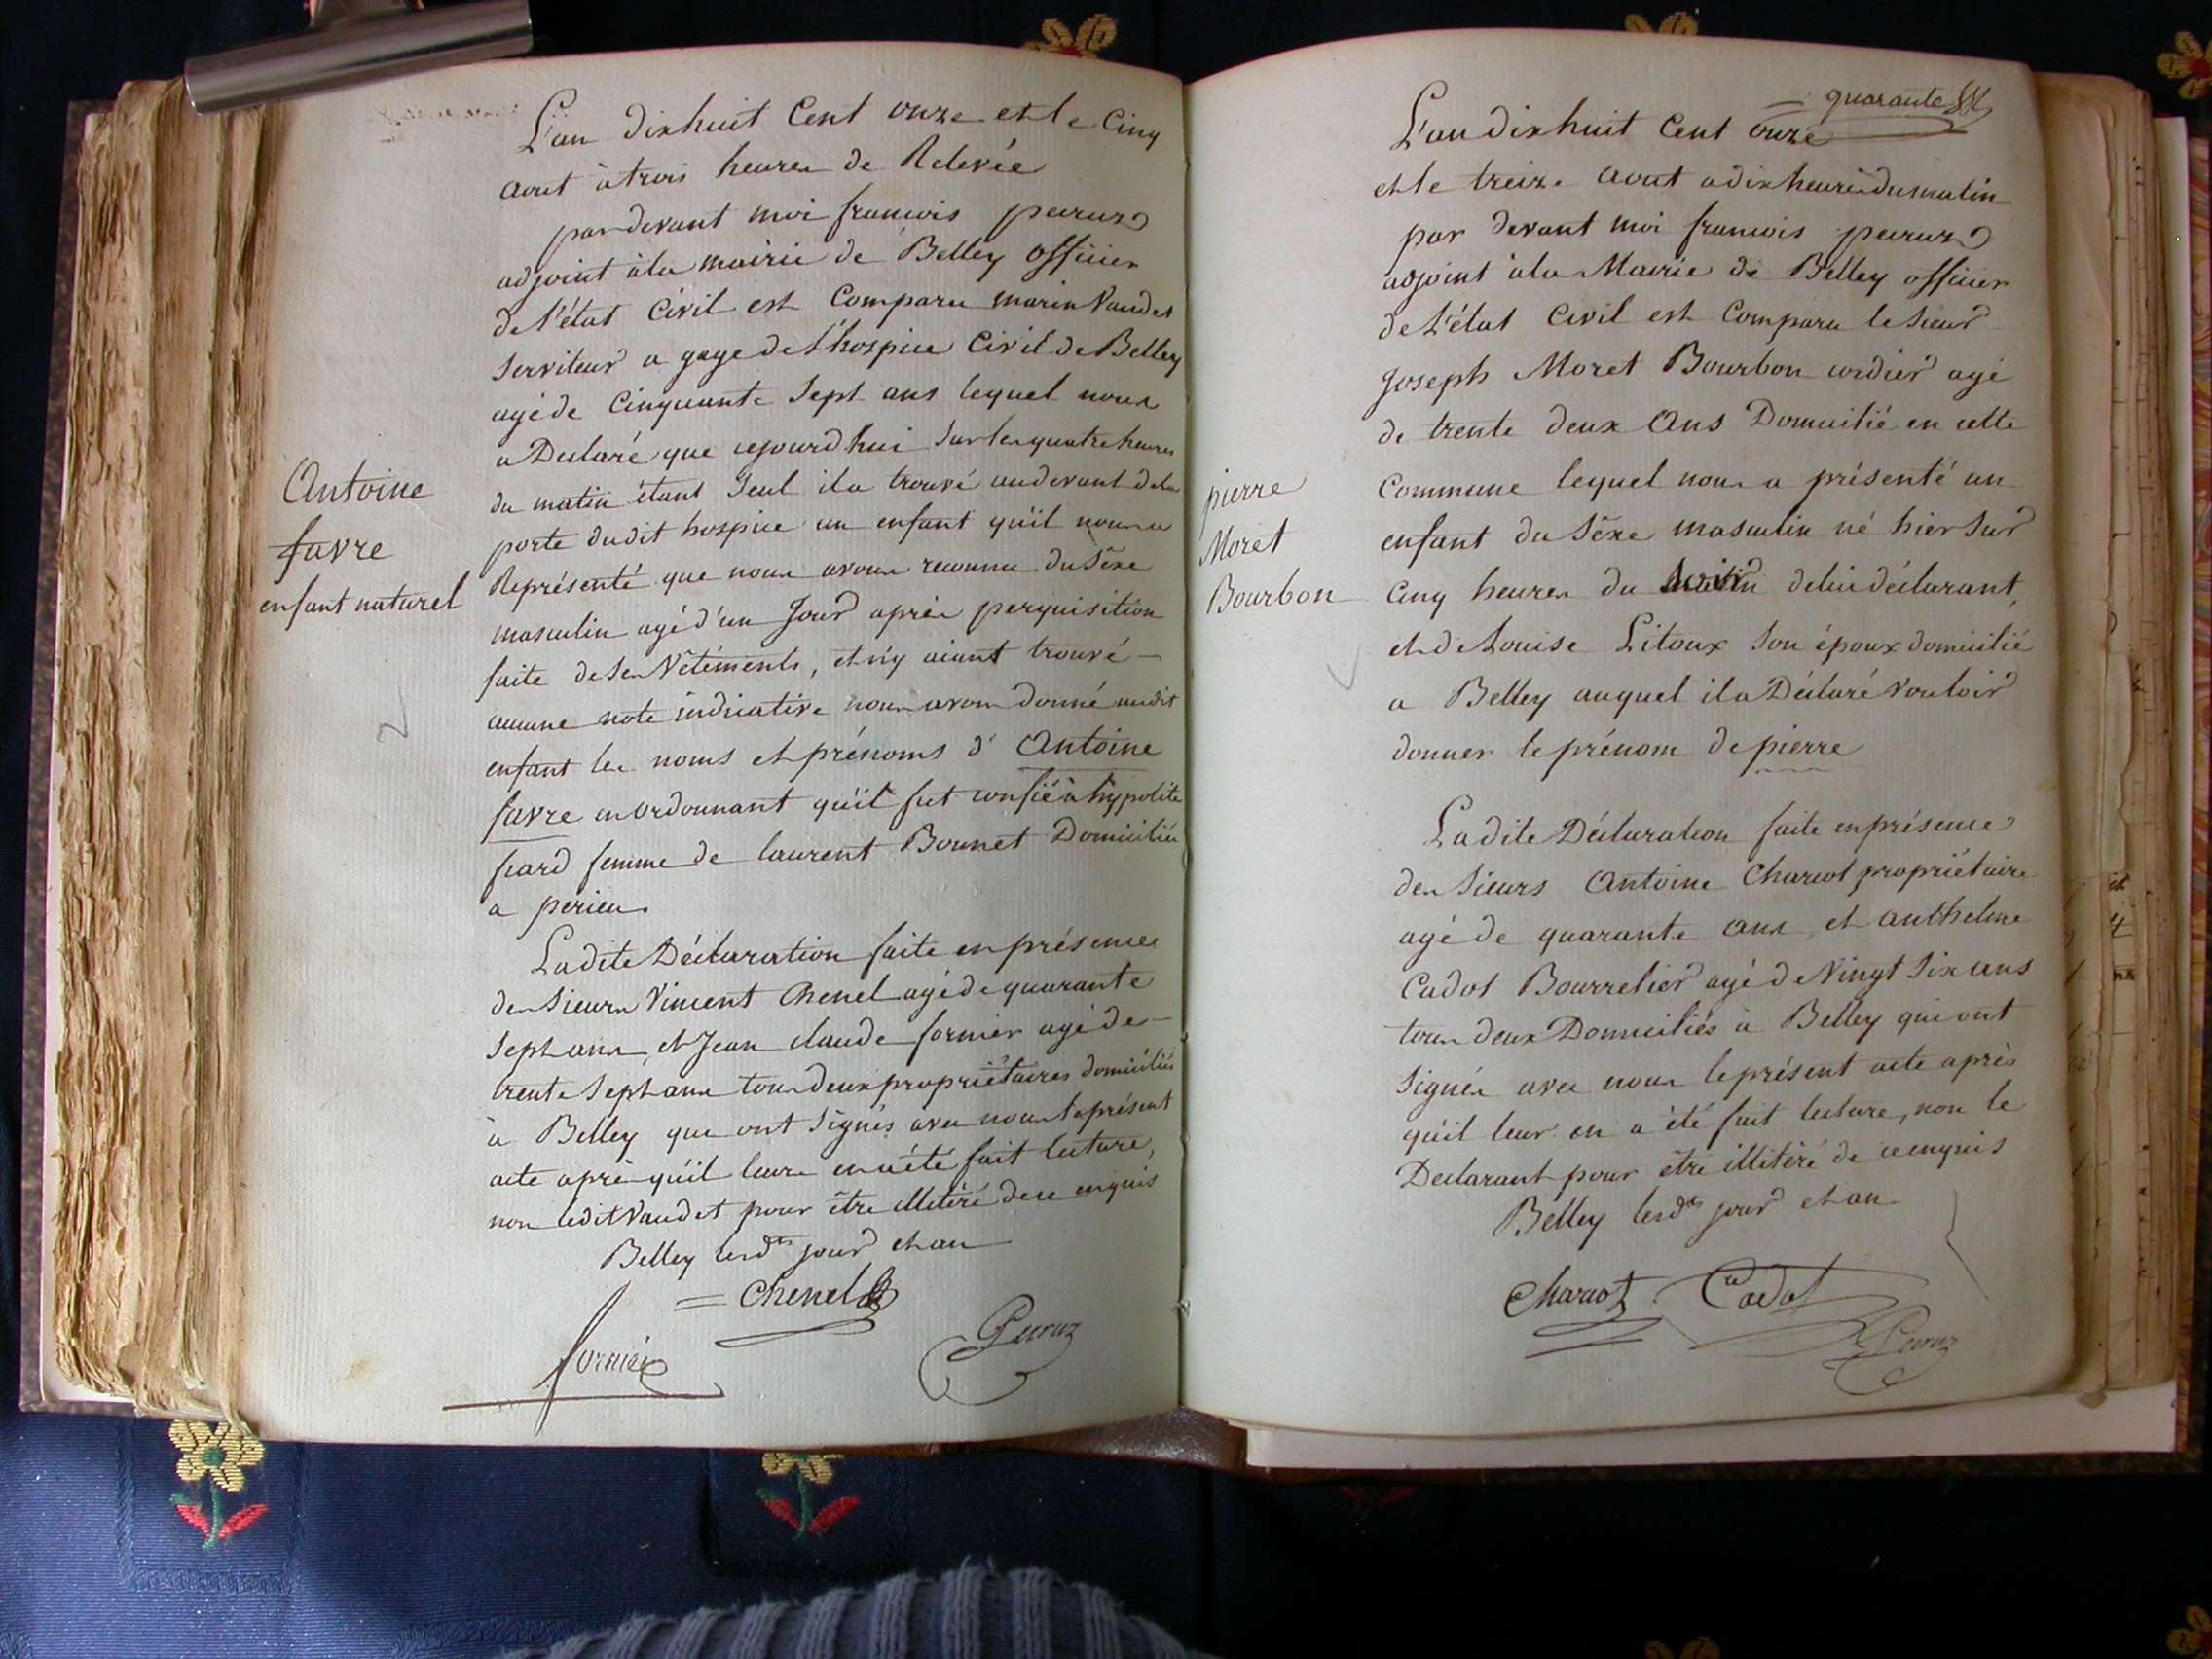 L'an dix huit Cent onze et le Cinq
aout à trois heures de Relevée
par devant moi francois peuruz
adjoint à la mairie de Belley officier
de l'état Civil est Comparu marin Vaudet
Serviteur a gage de l'hospice Civil de Belley
agé de Cinquante Sept ans lequel nous
a Declaré que cejourd'hui Sur les quatre heures
du matin étant Seul il a trouvé au devant de la
porte dudit hospice un enfant qu'il nous a
Représenté que nous avons reconnu du Sèxe
masculin agé d'un Jour après perquisition
faite de Ses Vêtements, et n'y aiant trouvé
aucune note indicative nous avons donné audit
enfant les noms et prénoms d' Antoine
favre en ordonnant qu'il fut confié à hypolite
fiard femme de laurent Bonnet Domiciliée
a perieu.
Ladite Déclaration faite en présence
des Sieurs Vincent Chenel agé de quarante
Sept ans, et Jean claude fornier agé de
trente Sept ans tous deux propriétaires domiciliés
à Belley qui ont Signés avec nous le présent
acte après qu'il leurs en a été fait lecture,
non ledit Vaudet pour être illitéré de ce enquis
Belley lesdts jour et an
Chenel
fornier
Peuruz
Antoine
favre
enfant naturel
quarante
L'an dix huit Cent onze
et le treize aout a dix heures du matin
par devant moi francois peuruz
adjoint à la Mairie de Belley officier
de L'état Civil est Comparu le Sieur
Joseph Moret Bourbon cordier agé
de trente deux Ans Domicilié en cette
Commune lequel nous a présenté un
enfant du Sèxe masculin né hier Sur
Cinq heures du soir de lui déclarant,
et de Louise Litoux Son époux domicilié
a Belley auquel il a Déclaré Vouloir
donner le prénom de pierre
Ladite Déclaration faite en présence
des Sieurs Antoine Charcot propriétaire
agé de quarante ans, et anthelme
Cadot Bourrelier agé de Vingt Six ans
tous deux Domiciliés à Belley qui ont
Signés avec nous le présent acte après
qu'il leur en a été fait lecture, non le
Declarant pour être illitéré de ce enquis
Belley lesdts jour et an
Charcot Cadot
Peuruz
pierre
Moret
Bourbon